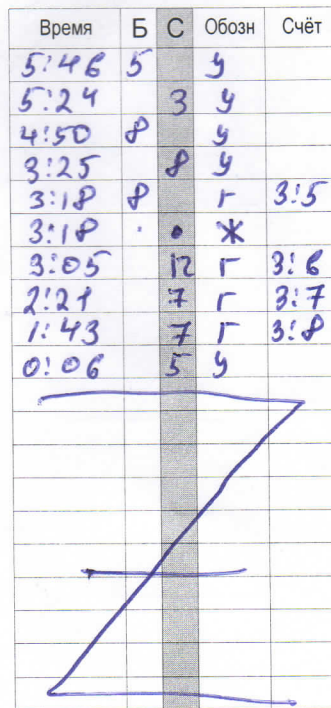 Время Б С Обозн Счёт
5:46 5 у
5:24 3 у
4:50 8 у
3:25 8 у
3:18 8 г 3:5
3:18 · • Ж
3:05 12 г 3:6
2:21 7 г 3:7
1:43 7 г 3:8
0:06 5 у